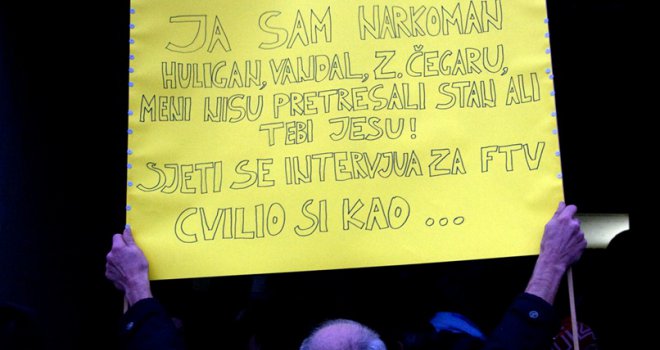 JA SAM NARKOMAN
HULIGAN, VANDAL, Z. ČEGARU,
MENI NISU PRETRESALI STAN ALI
TEBI JESU!
SJETI SE INTERVJUA ZA FTV
CVILIO SI KAO ...